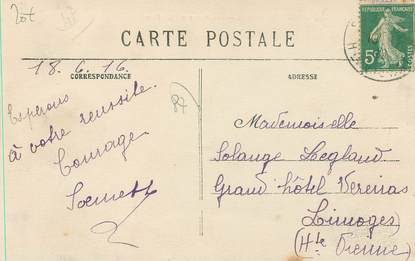 CARTE POSTALE
RÉPUBLIQUE FRANÇAISE
5c
POSTES
18.6.16.
CORRESPONDANCE
ADRESSE
87
Espérons
à votre réussite.
Courage
Mademoiselle
Solange Legland
Grand hôtel
Limoges
(Hte Vienne)